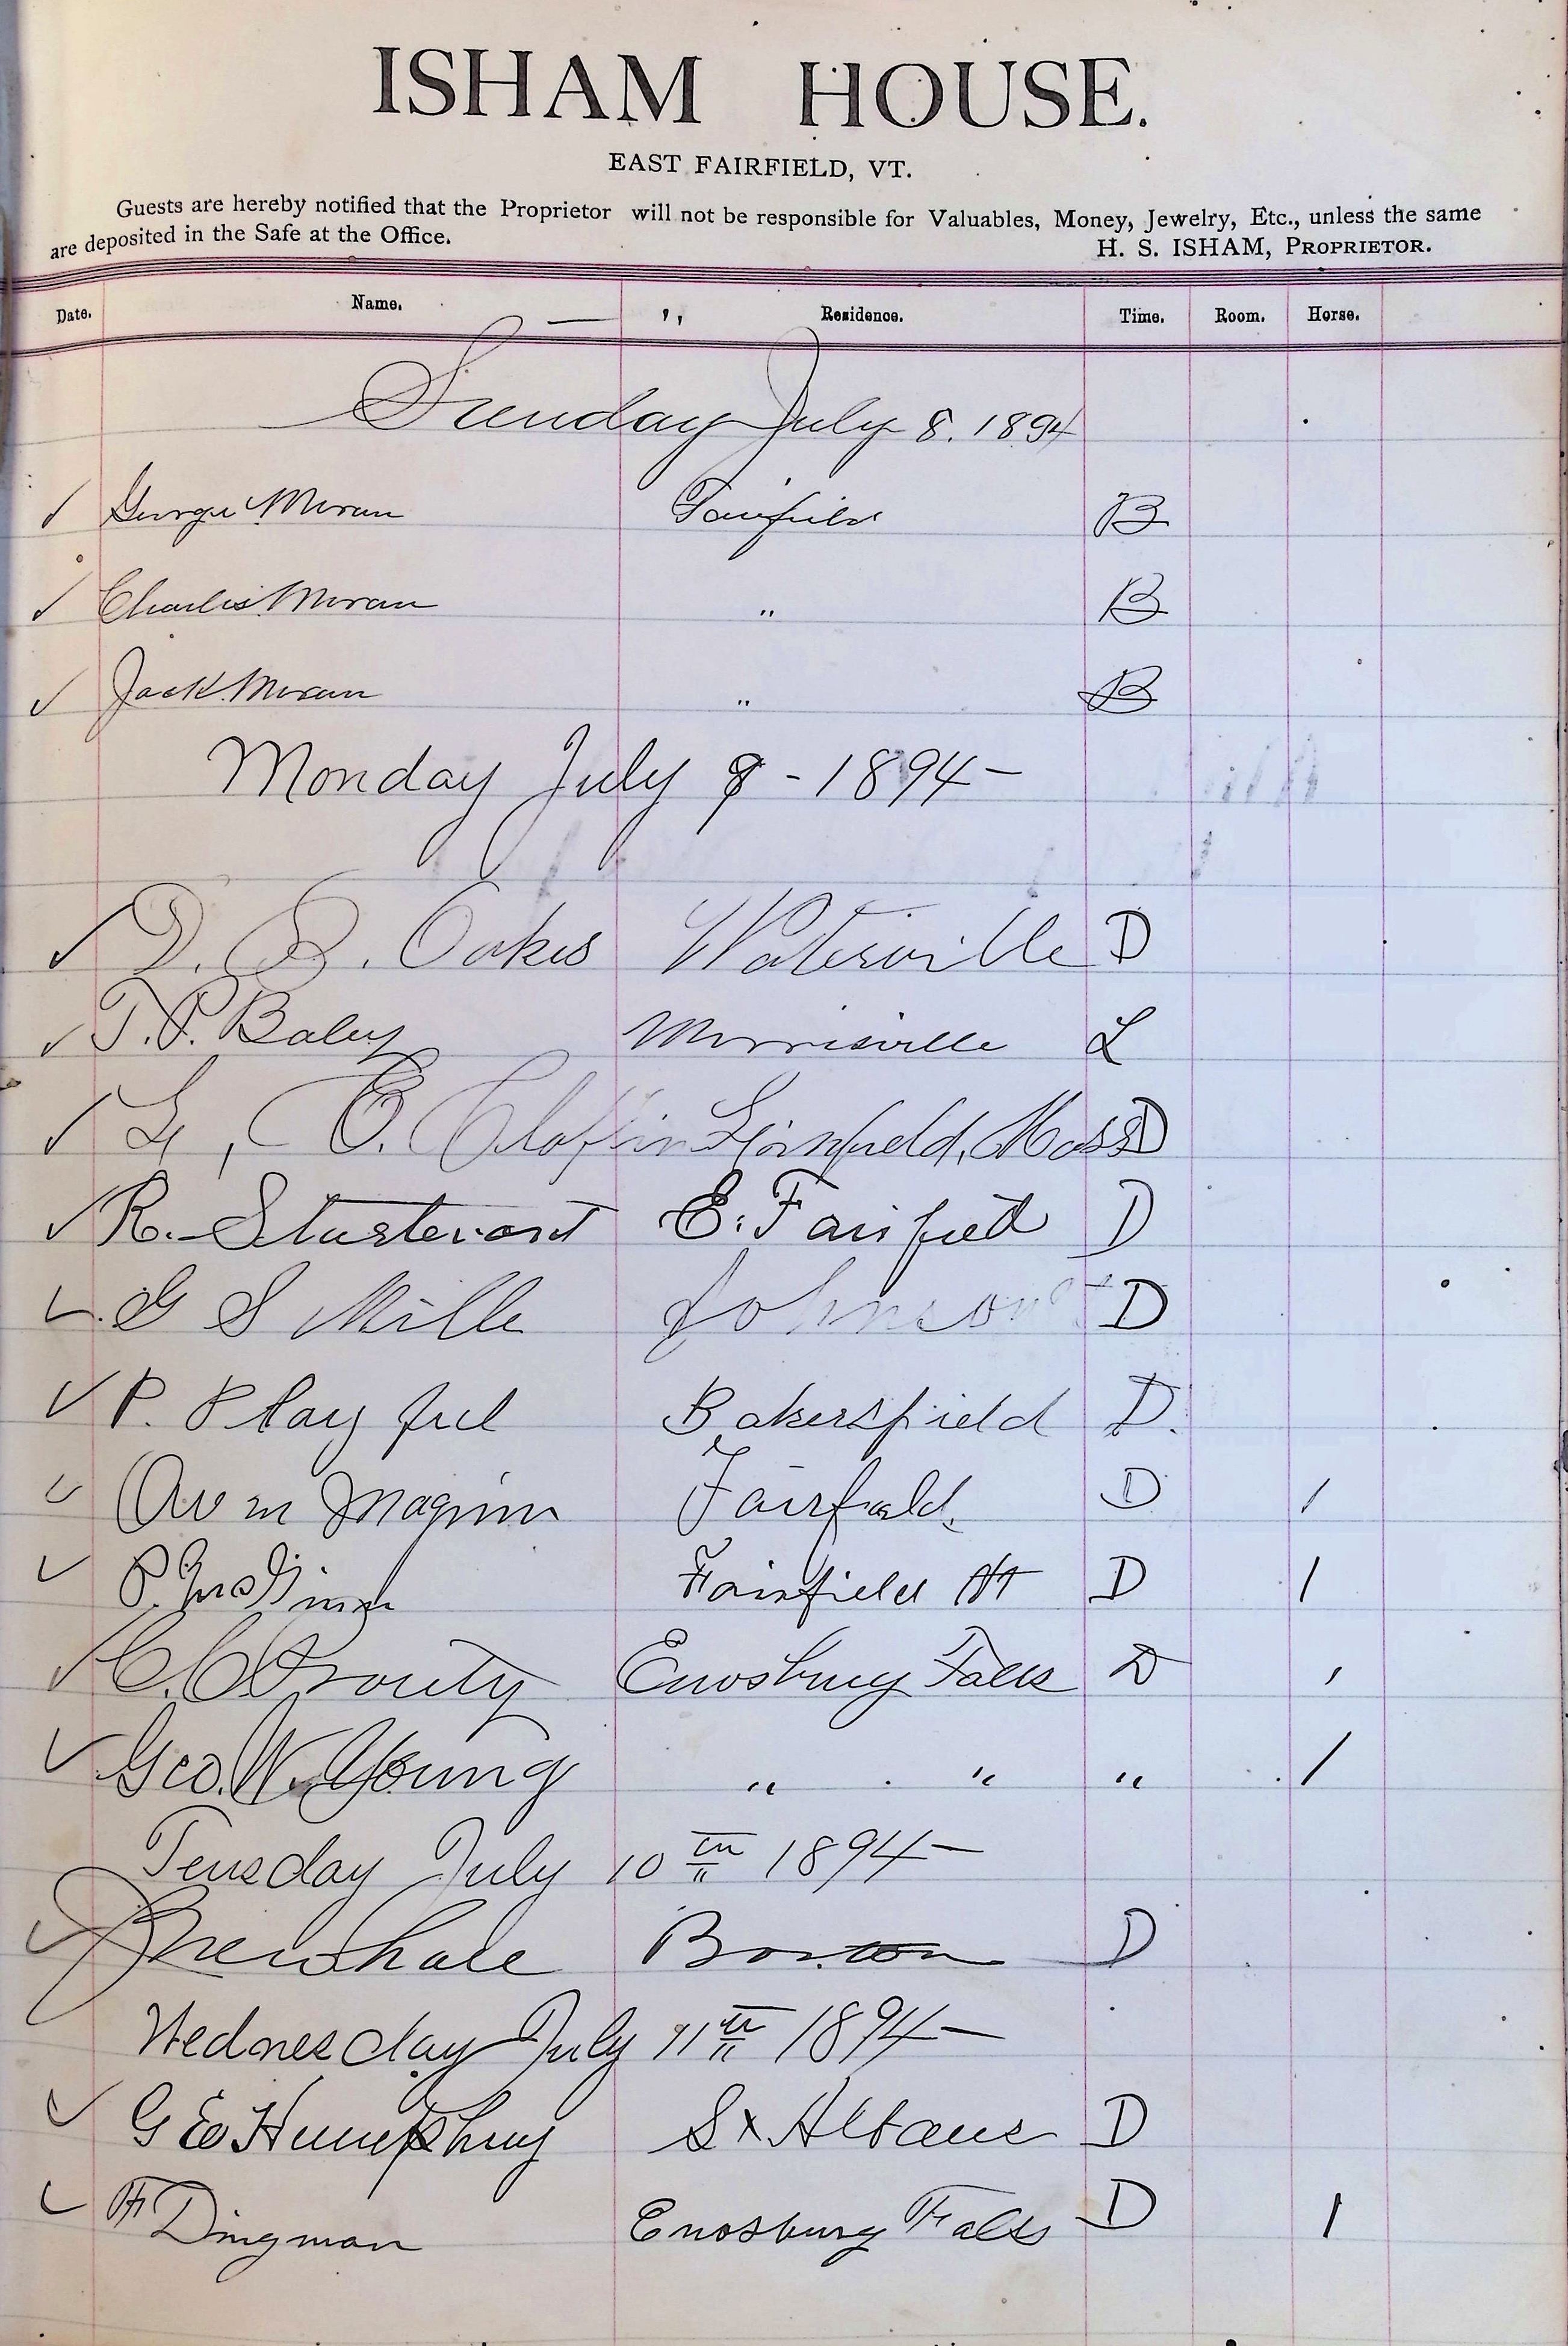 ISHAM HOUSE.
EAST FAIRFIELD, VT.
Guests are hereby notified that the Proprietor will not be responsible for Valuables, Money, Jewelry, Etc., unless the same
are deposited in the Safe at the Office.
H. S. ISHAM, PROPRIETOR.
Date. Name. Residence. Time. Room. Horse.
Sunday July 8. 1894
✓ George Moran Fairfield B
✓ Charlis Moran " B
✓ Jack Moran " B
Monday July 9 - 1894 -
✓ D. B. Oakes Waterville D
✓ T. P. Baley Morrisville L
✓ G, C. Claflin Mass D
✓ R. Sturtevant E. Fairfield D
✓ G S Mills Johnson Vt D
✓ P. Playful Bakersfield D.
✓ Fairfield. D /
✓ P. McGinn Fairfield Vt D 1
✓ C. C. Prouty Enosburg Falls D ,
✓ Geo. W. Young " " " /
Teusday July 10th 1894 -
✓ Boston D
Wednesday July 11th 1894 -
✓ G E Humphrey St Albans D
✓ H Dingman Enosburg Falls D 1